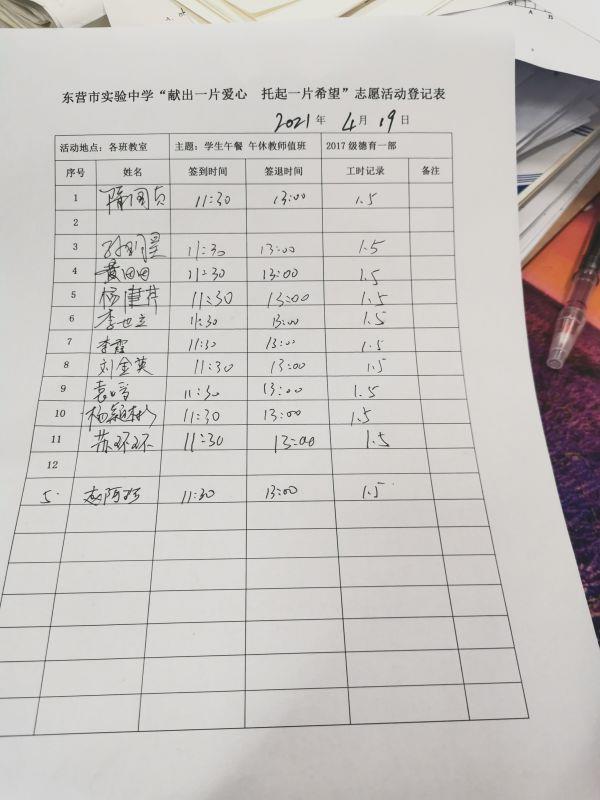 东营市实验中学“献出一片爱心 托起一片希望”志愿活动登记表
2021 年 4 月 19 日
活动地点：各班教室 主题：学生午餐 午休教师值班 2017 级德育一部
序号 姓名 签到时间 签退时间 工时记录 备注
1 11:30 13:00 1.5
2
3 11:30 13:00 1.5
4 11:30 13:00 1.5
5 11:30 13:00 1.5
6 李世立 11:30 13:00 1.5
7 李霞 11:30 13:00 1.5
8 刘金英 11:30 13:00 1.5
9 11:30 13:00 1.5
10 11:30 13:00 1.5
11 苏环环 11:30 13:00 1.5
12
5. 11:30 13:00 1.5